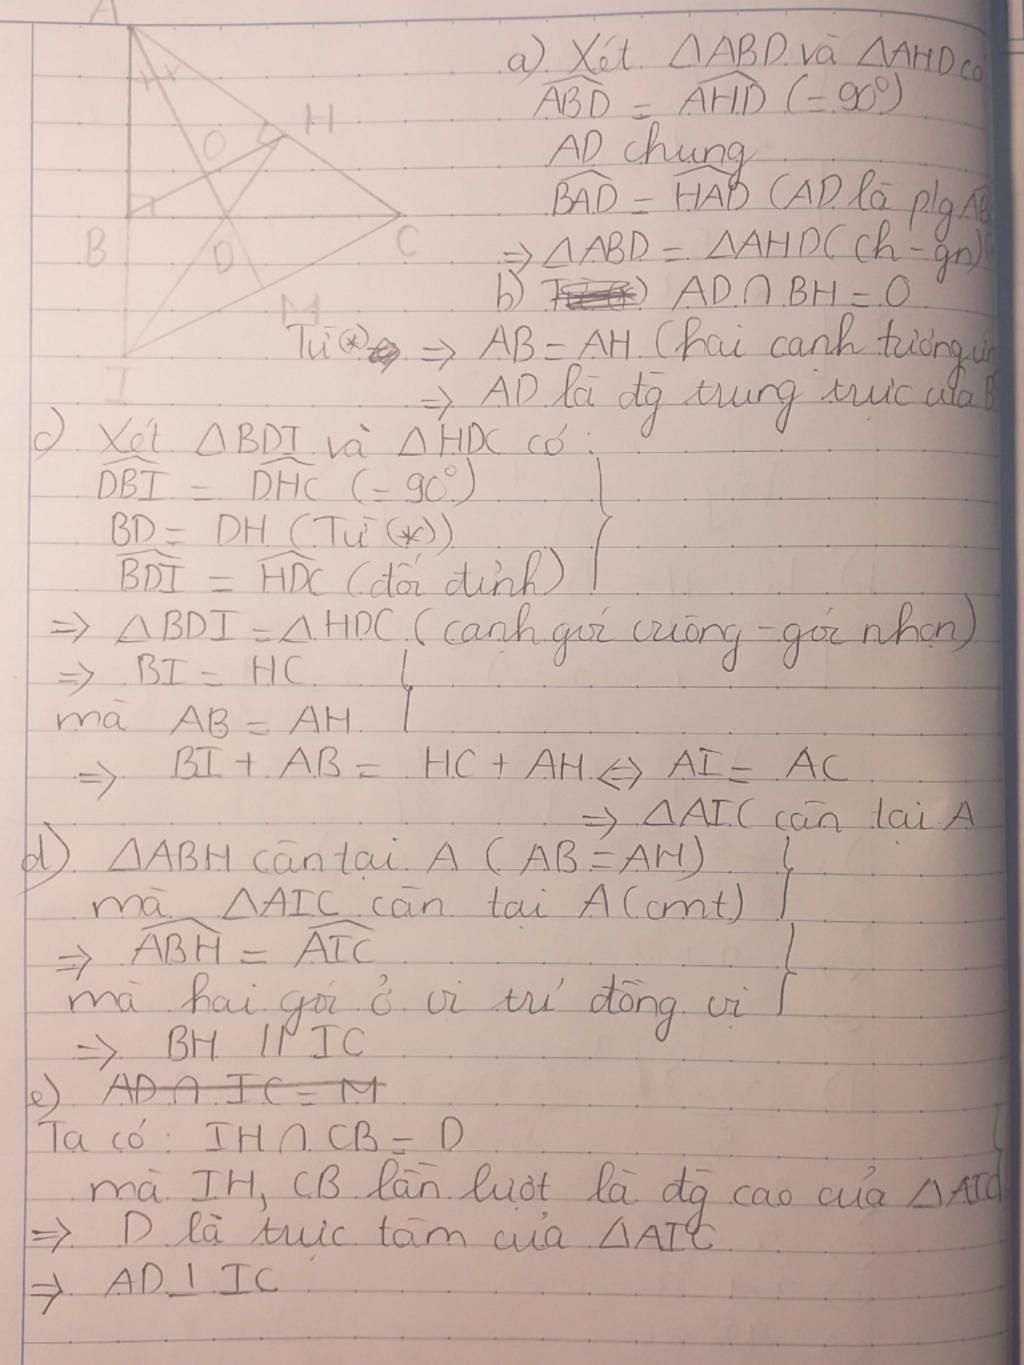 A
H
O
B
D
C
M
I
a) Xét ΔABD và ΔAHD có
ABD = AHD (= 90°)
AD chung
BAD = HAD (AD là plg AB
⇒ ΔABD = ΔAHD (ch - gn)
b) AD ∩ BH = O
Từ (*) ⇒ AB = AH (hai cạnh tương ứn
⇒ AD là đg trung trực của B
c) Xét ΔBDI và ΔHDC có :
DBI = DHC (= 90°)
BD = DH (Từ (*))
BDI = HDC (đối đỉnh)
⇒ ΔBDI = ΔHDC (cạnh góc vuông - góc nhọn)
⇒ BI = HC
mà AB = AH
⇒ BI + AB = HC + AH ⇔ AI = AC
⇒ ΔAIC cân tại A
d) ΔABH cân tại A (AB = AH)
mà ΔAIC cân tại A (cmt)
⇒ ABH = AIC
mà hai góc ở vị trí đồng vị
⇒ BH // IC
e) AD ∩ IC = M
Ta có : IH ∩ CB = D
mà IH, CB lần lượt là đg cao của ΔAIC
⇒ D là trực tâm của ΔAIC
⇒ AD ⊥ IC